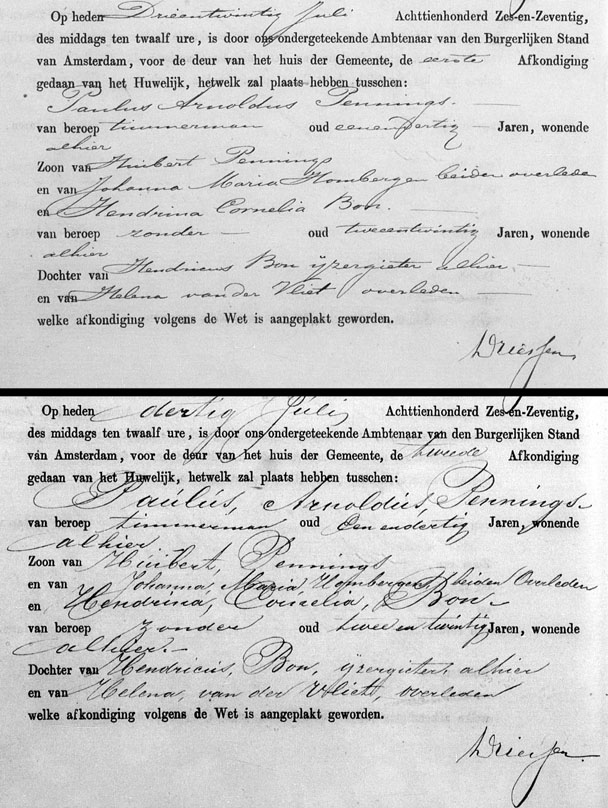 Op heden Drieentwintig Juli Achttienhonderd Zes-en-Zeventig,
des middags ten twaalf ure, is door ons ondergeteekende Ambtenaar van den Burgerlijken Stand
van Amsterdam, voor de deur van het huis der Gemeente, de eerste Afkondiging
gedaan van het Huwelijk, hetwelk zal plaats hebben tusschen:
Paulus Arnoldus Pennings.
van beroep timmerman oud eenendertig Jaren, wonende
alhier
Zoon van Huibert Pennings
en van Johanna Maria Hombergen beiden overlede
en Hendrina Cornelia Bon.
van beroep zonder oud tweeentwintig Jaren, wonende
alhier
Dochter van Hendricus Bon ijzergieter alhier.
en van Helena van der Vliet overleden
welke afkondiging volgens de Wet is aangeplakt geworden.
Driessen
Op heden dertig Juli Achttienhonderd Zes-en-Zeventig,
des middags ten twaalf ure, is door ons ondergeteekende Ambtenaar van den Burgerlijken Stand
van Amsterdam, voor de deur van het huis der Gemeente, de tweede Afkondiging
gedaan van het Huwelijk, hetwelk zal plaats hebben tusschen:
Paulus, Arnoldus, Pennings
van beroep timmerman oud Een endertig Jaren, wonende
alhier.
Zoon van Huibert, Pennings
en van Johanna, Maria Hombergen beiden Overleden
en Hendrina, Cornelia, Bon
van beroep zonder oud twee en twintig Jaren, wonende
alhier.
Dochter van Hendricus, Bon, ijzergieter, alhier
en van Helena, van der Vliet, overleden
welke afkondiging volgens de Wet is aangeplakt geworden.
Driessen